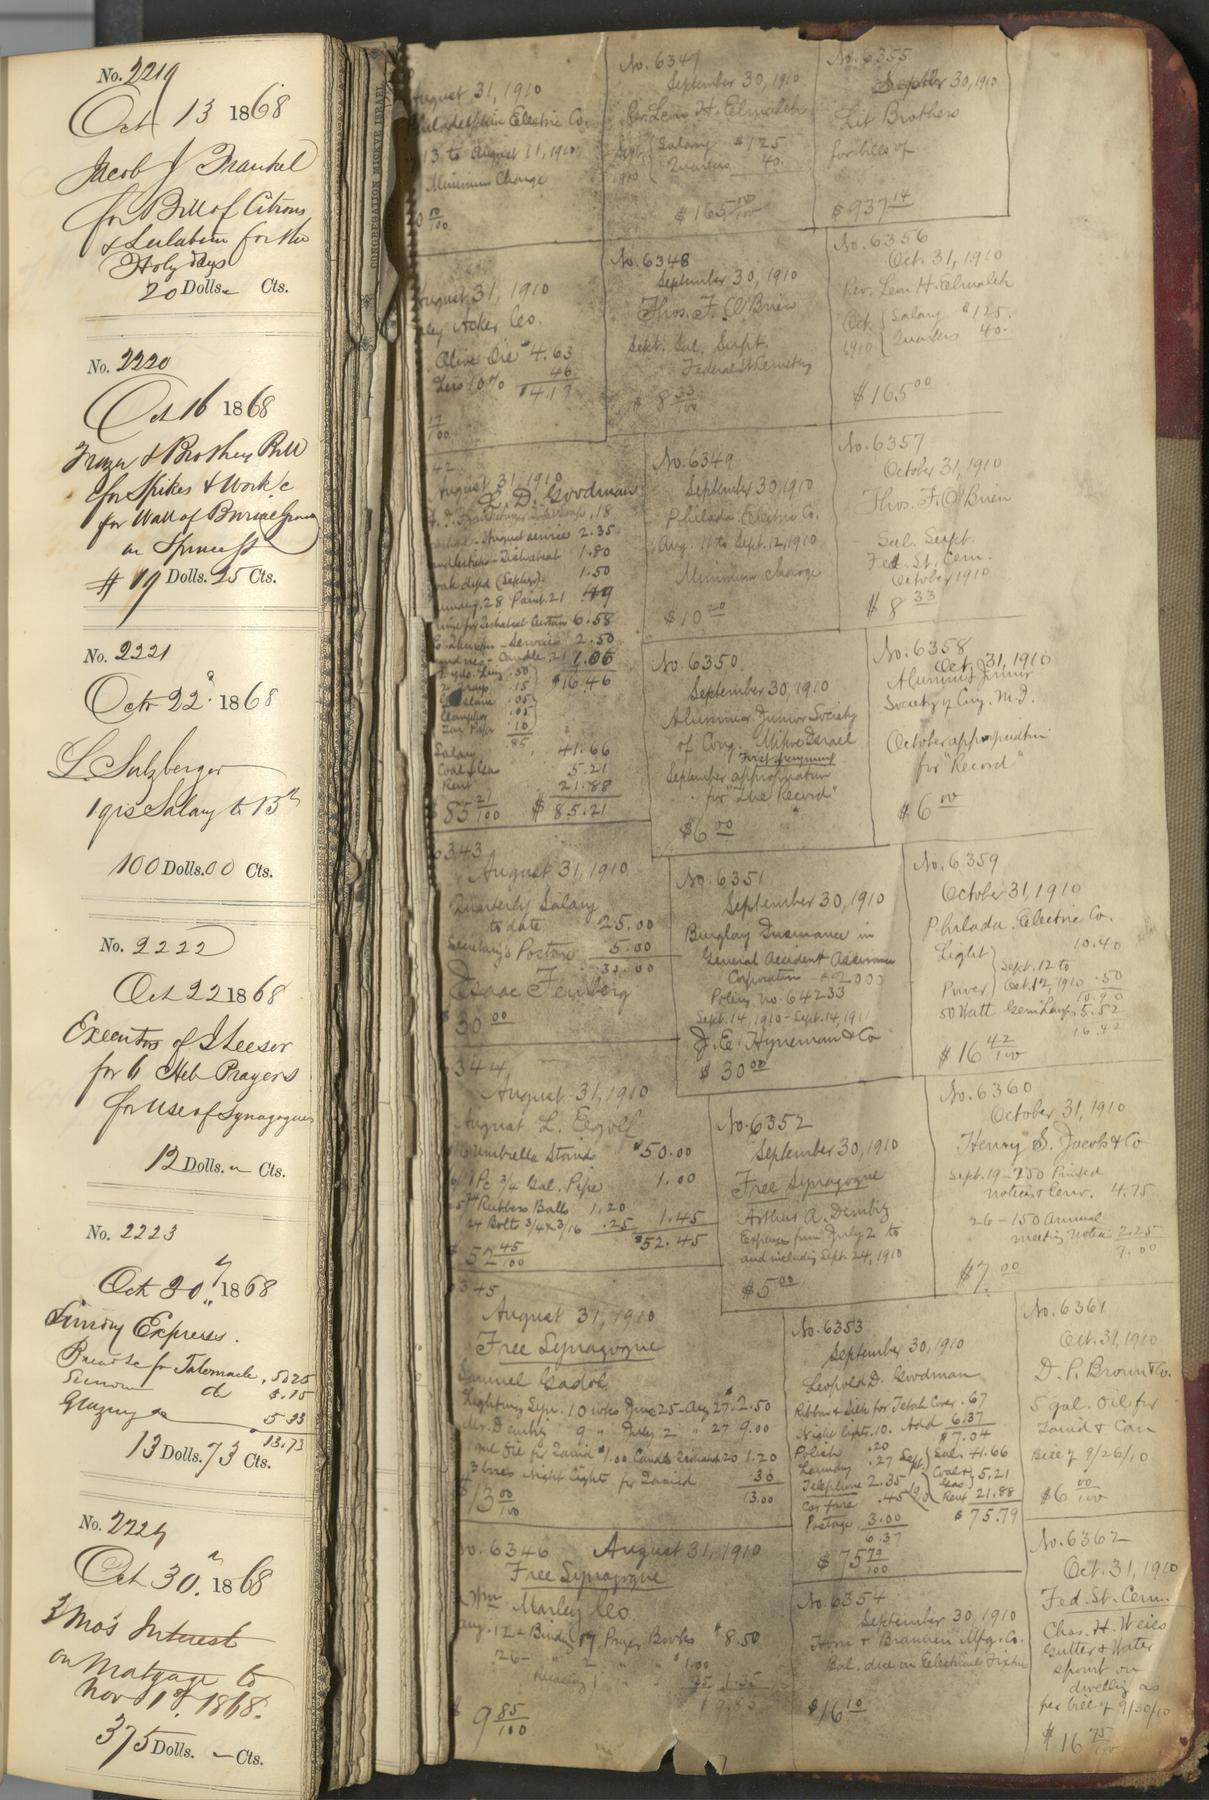 No. 2219
Oct 13 1868
Jacob J Frankel
for Bill of Citrons
& Lulabim for the
Holy days
20 Dolls. Cts.
No. 2220
Oct 16 1868
& Brother Bill
for Spikes & Work &c
for Wall of Burial Ground
on Spruce St
$ 19 Dolls. 25 Cts.
No. 2221
Octr 22d 1868
L. Sulzberger
1 qrs Salary to 13th
100 Dolls. 00 Cts.
No. 2222
Oct 22 1868
Executors of I Leeser
for 6 Heb Prayers
for use of Synagogue
12 Dolls. - Cts.
No. 2223
Oct 30 1868
Sundry Expenses.
for Tabernacle, 5025
do
Glazing do 5 33
13.73
13 Dolls. 73 Cts.
No. 2224
Oct 30th 1868
3 Mo's Interest
on Mortgage to
Nov 1st 1868.
375 Dolls. - Cts.
CONGREGATION MICKVE ISRAEL
August 31, 1910
Philadelphia Electric Co.
13 to August 11, 1910
Minimum Charge
August 31, 1910
Acker Co.
Olive Oil $4.63
Less 10% 46
$4.17
42
August 31, 1910
L. D. Goodman
.18
August service 2.35
1.80
1.50
28 Paint .21 .49
6.58
Service 2.50
Candle .21 1.06
$16.46
.50
.15
.05
.05
.10
.85
Salary 41.66
Coal & Gas 5.21
Rent 21.88
$85 21/100 $85.21
6343
August 31, 1910
Quarterly Salary
to date 25.00
Secretary's Postage 5.00
30.00
Isaac Feinberg
30 00
344
August 31, 1910
August L.
Umbrella Stands $50.00
1 Pc 3/4 Gal. Pipe 1.00
Rubber Balls 1.20
24 Bolts 3/4 x 3/16 .25 1.45
$52.45
52 45/100
345
August 31, 1910
Free Synagogue
Samuel Gadol
Lighting Syn. 10 wks June 25-Aug 27. $2.50
Mrs. Dembitz 9 " July 2 " 27 9.00
gal Oil for Tamid $1.00 Candle 20 1.20
3 boxes Night Lights for Tamid 30
13.00
$13 00/100
No. 6346 August 31, 1910
Free Synagogue
Wm. Marley Co.
Aug. 12 - Bind 17 Prayer Books $8.50
26 - " 2 " " $1.00
1 35 1.35
$9.85
$ 9 85/100
No. 6347
September 30, 1910
Rev. Leon H. Elmaleh
Sept. Salary $125
1910 Quarters 40.
$165 00/100
No. 6348
September 30, 1910
Thos. F. O'Brien
Sept. Sal. Supt.
Federal St Cemetery
$ 8 33/100
No. 6349
September 30, 1910
Philada Electric Co.
Aug. 11 to Sept. 12, 1910
Minimum charge
$10
No. 6350
September 30, 1910
Alumni Junior Society
of Cong. Mikve Israel
First payment
September appropriation
for "The Record"
$6 00
No. 6351
September 30, 1910
Burglary Insurance in
General Accident Assurance
Corporation - $2000
Policy no. 64233
Sept. 14, 1910 - Sept. 14, 1911
J. E. Hyneman & Co
$ 30 00
No. 6352
September 30, 1910
Free Synagogue
Arthur A. Dembitz
Expenses from July 2 to
and including Sept. 24, 1910
$5 00
No. 6353
September 30, 1910
Leopold D. Goodman
Ribbon & Silk for Torah Cover .67
Night lights .10. Add 6.37
Polish .20 $7.04
Laundry .27 Sept. Sal. 41.66
Telephone 2.35 1910 Coal & Gas 5.21
Car fare .45 Rent 21.88
Postage 3.00 $75.79
6.37
$ 75 79/100
No. 6354
September 30, 1910
Horn & Brannen Mfg. Co.
Bal. due on Electrical Fixture
$16 10
No. 6355
September 30, 1910
Lit Brothers
for bills of
$937 14
No. 6356
Oct. 31, 1910
Rev. Leon H. Elmaleh
Oct. Salary $125.
1910 Quarters 40.
$165 00
No. 6357
October 31, 1910
Thos. F. O'Brien
Sal. Supt.
Fed. St. Cem.
October 1910
$ 8 33
No. 6358
Oct. 31, 1910
Alumni Junior
Society of Cong. M.I.
October appropriation
for "Record"
$6 00
No. 6359
October 31, 1910
Philada. Electric Co.
Light 10.40
Sept. 12 to
Power Oct. 12, 1910 .50
10.90
50 Watt Gem Lamps 5.52
16.42
$16 42/100
No. 6360
October 31, 1910
Henry S. Jacobs & Co
Sept. 19 - 250 Printed
notices & Env. 4.75
26 - 150 Annual
meeting Notices 2.25
7.00
$7. 00
No. 6361
Oct. 31, 1910
D. P. Brown & Co.
5 gal. Oil for
Tamid & Can
Bill of 9/26/10
$6 00/100
No. 6362
Oct. 31, 1910
Fed. St. Cem.
Chas. H. Weiss
Gutter & Water
spout on
dwelling as
per bill of 9/30/10
$ 16 75/100